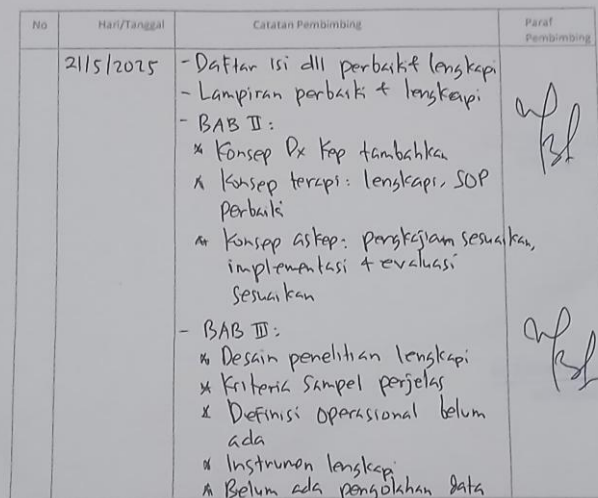 No Hari/Tanggal Catatan Pembimbing Paraf Pembimbing
21/5/2025 - Daftar isi dll perbaiki + lengkapi
- Lampiran perbaiki + lengkapi
- BAB II:
* Konsep Dx Kep tambahkan
* Konsep terapi: lengkapi, SOP
perbaiki
* Konsep askep: pengkajian sesuaikan,
implementasi + evaluasi
sesuaikan
- BAB III:
* Desain penelitian lengkapi
* Kriteria sampel perjelas
* Definisi operasional belum
ada
* Instrumen lengkapi
* Belum ada pengolahan data